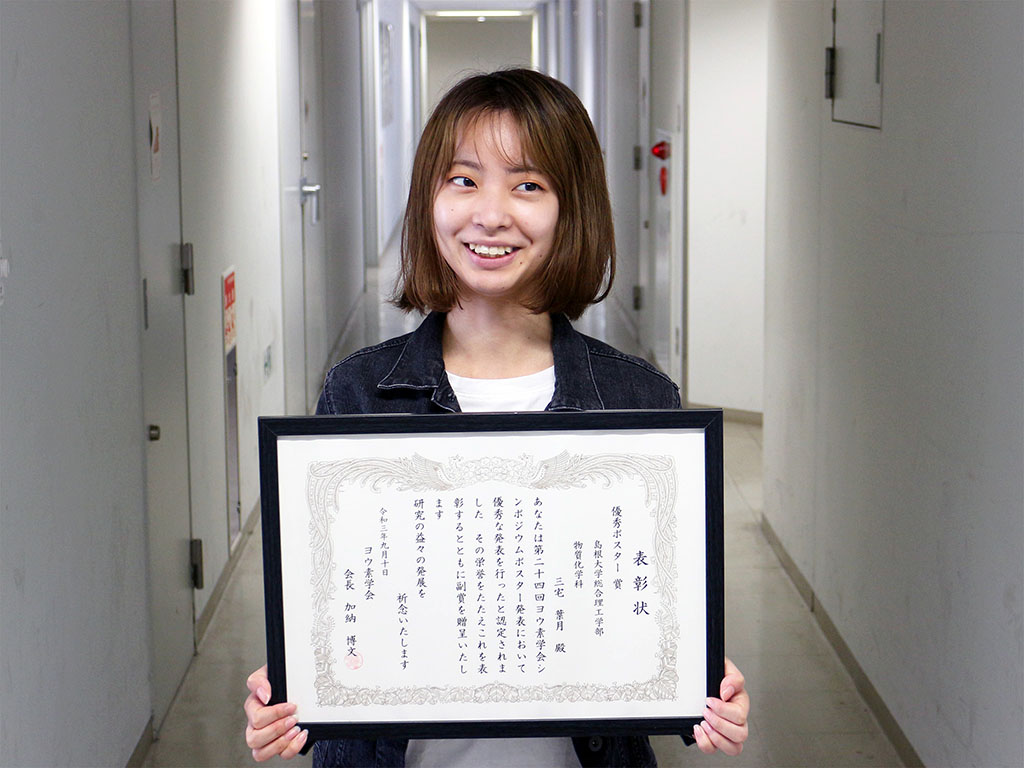 表彰状
優秀ポスター賞
島根大学総合理工学部
物質化学科
三宅 葉月 殿
あなたは第二十四回ヨウ素学会シ
ンポジウムポスター発表において
優秀な発表を行ったと認定されま
した その栄誉をたたえこれを表
彰するとともに副賞を贈呈いたし
ます
研究の益々の発展を
祈念いたします
令和三年九月十日
ヨウ素学会
会長 加納 博文